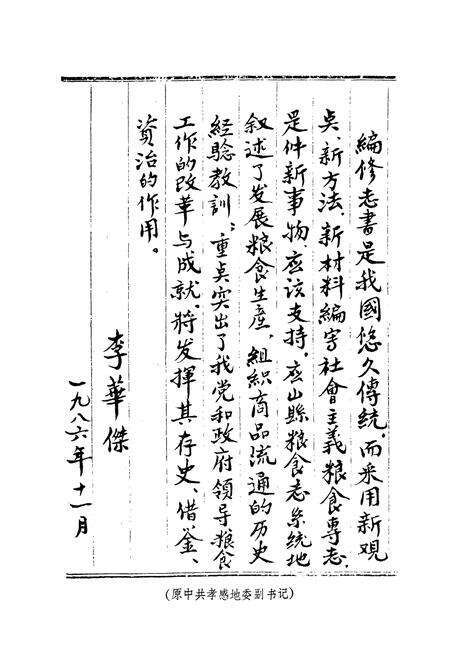 编修志書是我國悠久傳統，而采用新观
点、新方法、新材料编写社會主義粮食專志，
是件新事物，应该支持。应山縣粮食志系统地
叙述了发展粮食生產，组织商品流通的历史
经驗教訓；重点突出了我党和政府領导粮食
工作的改革与成就。将发揮其存史、借鉴、
資治的作用。
李華傑
一九八六年十一月
(原中共孝感地委副书记)